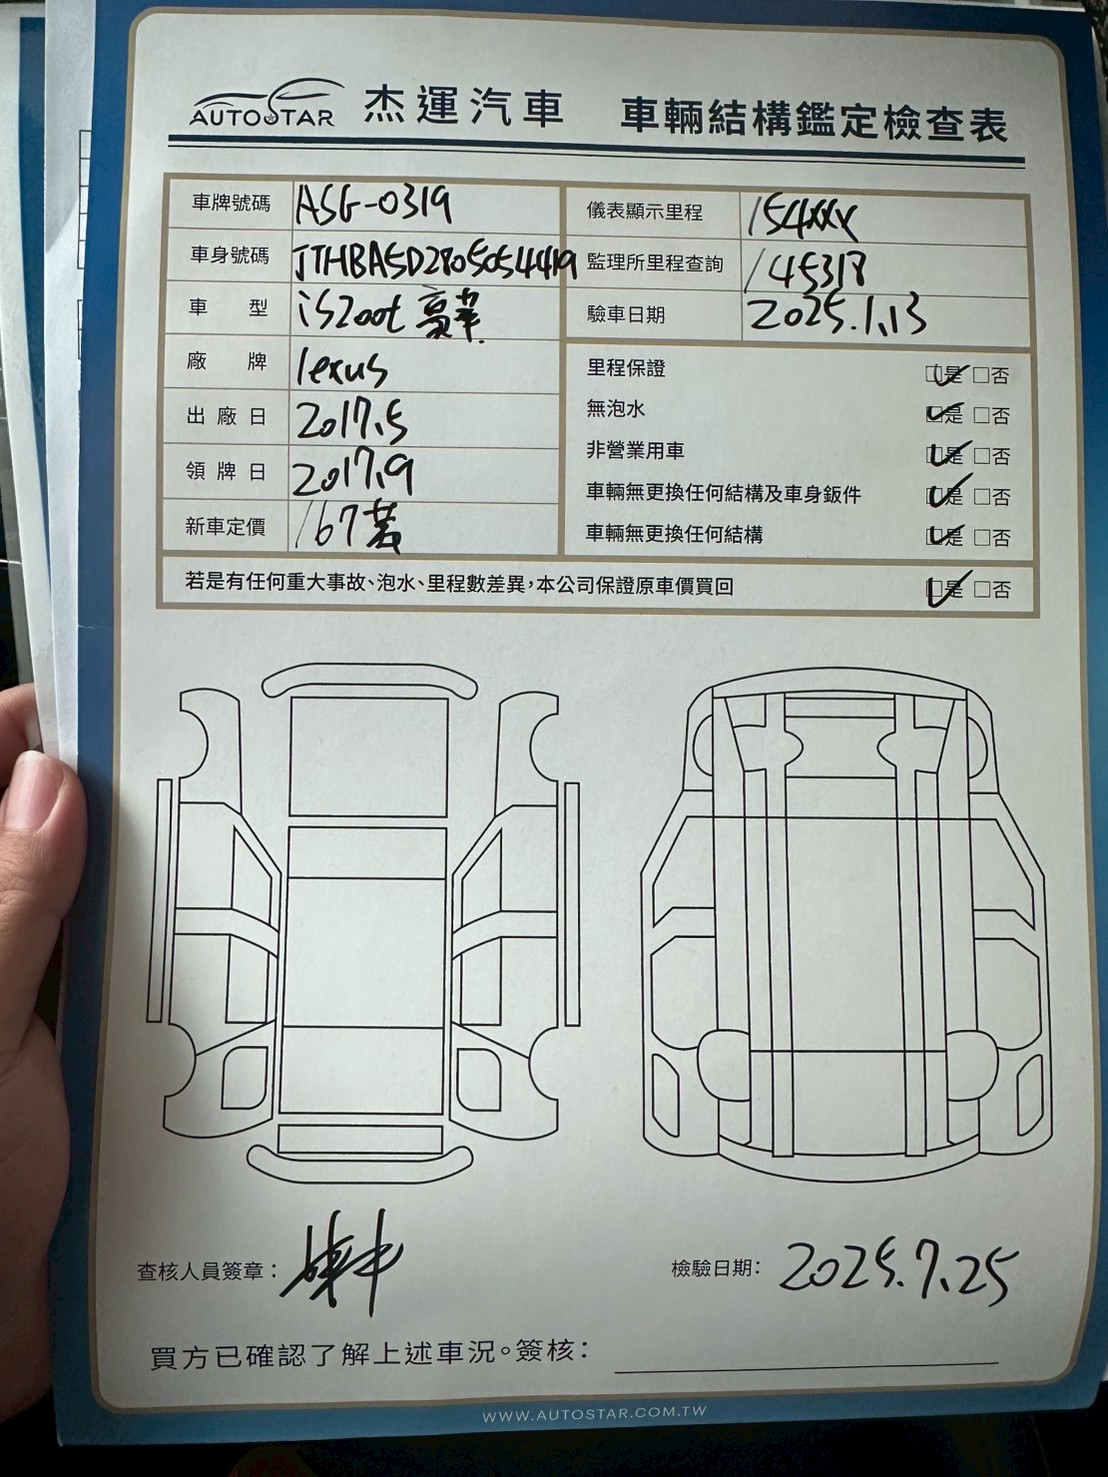 AUTOSTAR 杰運汽車 車輛結構鑑定檢查表
車牌號碼 ASG-0319
車身號碼 JTHBA5D2805054419
車型 is200t 豪華
廠牌 lexus
出廠日 2017.5
領牌日 2017.9
新車定價 167萬
儀表顯示里程 154xxx
監理所里程查詢 145318
驗車日期 2025.1.13
里程保證 ☑是 □否
無泡水 ☑是 □否
非營業用車 ☑是 □否
車輛無更換任何結構及車身鈑件 ☑是 □否
車輛無更換任何結構 ☑是 □否
若是有任何重大事故、泡水、里程數差異,本公司保證原車價買回 ☑是 □否
查核人員簽章:
檢驗日期: 2025.7.25
買方已確認了解上述車況。簽核:
WWW.AUTOSTAR.COM.TW